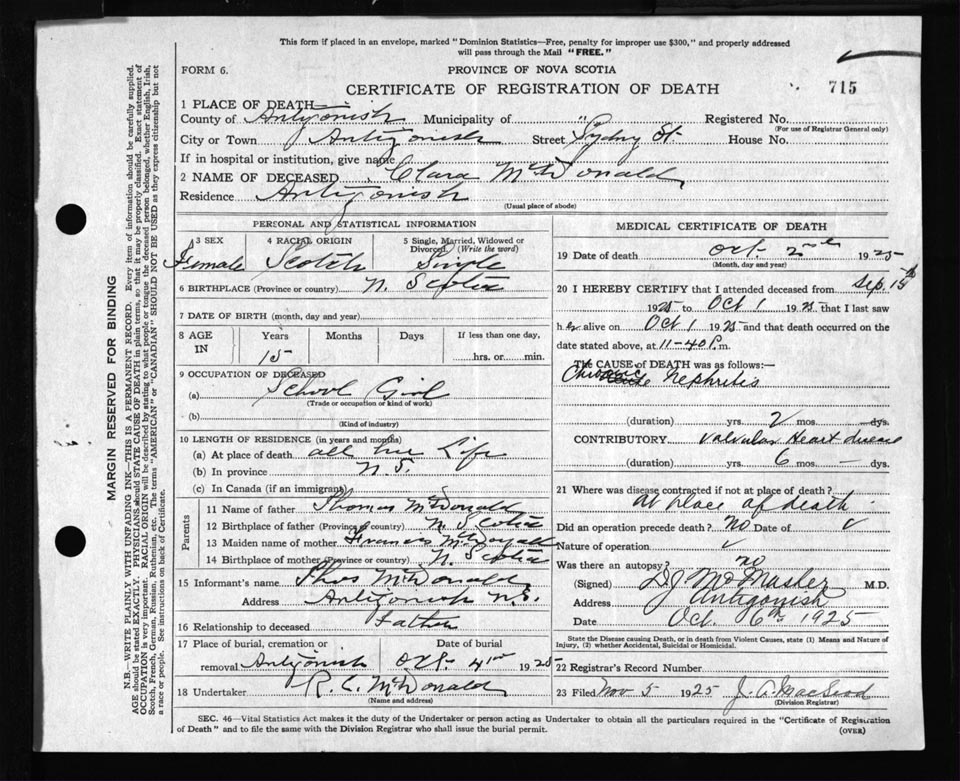 This form if placed in an envelope, marked "Dominion Statistics—Free, penalty for improper use $300," and properly addressed
will pass through the Mail "FREE."
FORM 6.
PROVINCE OF NOVA SCOTIA
CERTIFICATE OF REGISTRATION OF DEATH
715
1 PLACE OF DEATH—
County of Antigonish Municipality of " Registered No.
(For use of Registrar General only)
City or Town Antigonish Street Sydney St. House No.
If in hospital or institution, give name
2 NAME OF DECEASED Clara McDonald
Residence Antigonish
(Usual place of abode)
PERSONAL AND STATISTICAL INFORMATION
3 SEX 4 RACIAL ORIGIN 5 Single, Married, Widowed or
Divorced (Write the word)
Female Scotch Single
6 BIRTHPLACE (Province or country) N. Scotia
7 DATE OF BIRTH (month, day and year)
8 AGE IN Years Months Days If less than one day,
15 hrs. or min.
9 OCCUPATION OF DECEASED
(a) School Girl
(Trade or occupation or kind of work)
(b)
(Kind of industry)
10 LENGTH OF RESIDENCE (in years and months)
(a) At place of death all her Life
(b) In province N.S.
(c) In Canada (if an immigrant)
Parents
11 Name of father Thomas McDonald
12 Birthplace of father (Province or country) N. Scotia
13 Maiden name of mother Francis
14 Birthplace of mother (Province or country) N. Scotia
15 Informant's name Thos McDonald
Address Antigonish N.S.
16 Relationship to deceased father
17 Place of burial, cremation or Date of burial
removal Antigonish Oct 4 1925
18 Undertaker R. C. McDonald
(Name and address)
MEDICAL CERTIFICATE OF DEATH
19 Date of death Oct. 2nd 1925
(Month, day and year)
20 I HEREBY CERTIFY that I attended deceased from Sep. 15th
1925 to Oct 1 1925 that I last saw
her alive on Oct 1 1925 and that death occurred on the
date stated above, at 11-40 P.m.
THE CAUSE OF DEATH was as follows:—
Chronic Nephritis
(duration) yrs. 2 mos. dys.
CONTRIBUTORY Valvular Heart disease
(duration) yrs. 6 mos. dys.
21 Where was disease contracted if not at place of death?
At place of death
Did an operation precede death? no Date of
Nature of operation
Was there an autopsy? no
(Signed) D J McMaster M.D.
Address Antigonish
Date Oct. 6th 1925
State the Disease causing Death, or in death from Violent Causes, state (1) Means and Nature of
Injury, (2) whether Accidental, Suicidal or Homicidal.
22 Registrar's Record Number
23 Filed Nov 5 1925 J. A. MacLeod
(Division Registrar)
SEC. 46—Vital Statistics Act makes it the duty of the Undertaker or person acting as Undertaker to obtain all the particulars required in the "Certificate of Registration
of Death" and to file the same with the Division Registrar who shall issue the burial permit.
(OVER)
MARGIN RESERVED FOR BINDING
N.B.—WRITE PLAINLY WITH UNFADING INK—THIS IS A PERMANENT RECORD. Every item of information should be carefully supplied.
AGE should be stated EXACTLY. PHYSICIANS should STATE CAUSE OF DEATH in plain terms, so that it may be properly classified. Exact statement of
OCCUPATION is very important. RACIAL ORIGIN will be described by stating to what people or tongue the deceased person belonged, whether English, Irish,
Scotch, French, German, Russian, Ruthenian, etc. The terms "AMERICAN" or "CANADIAN" SHOULD NOT BE USED as they express citizenship but not
a race or people. See instructions on back of Certificate.